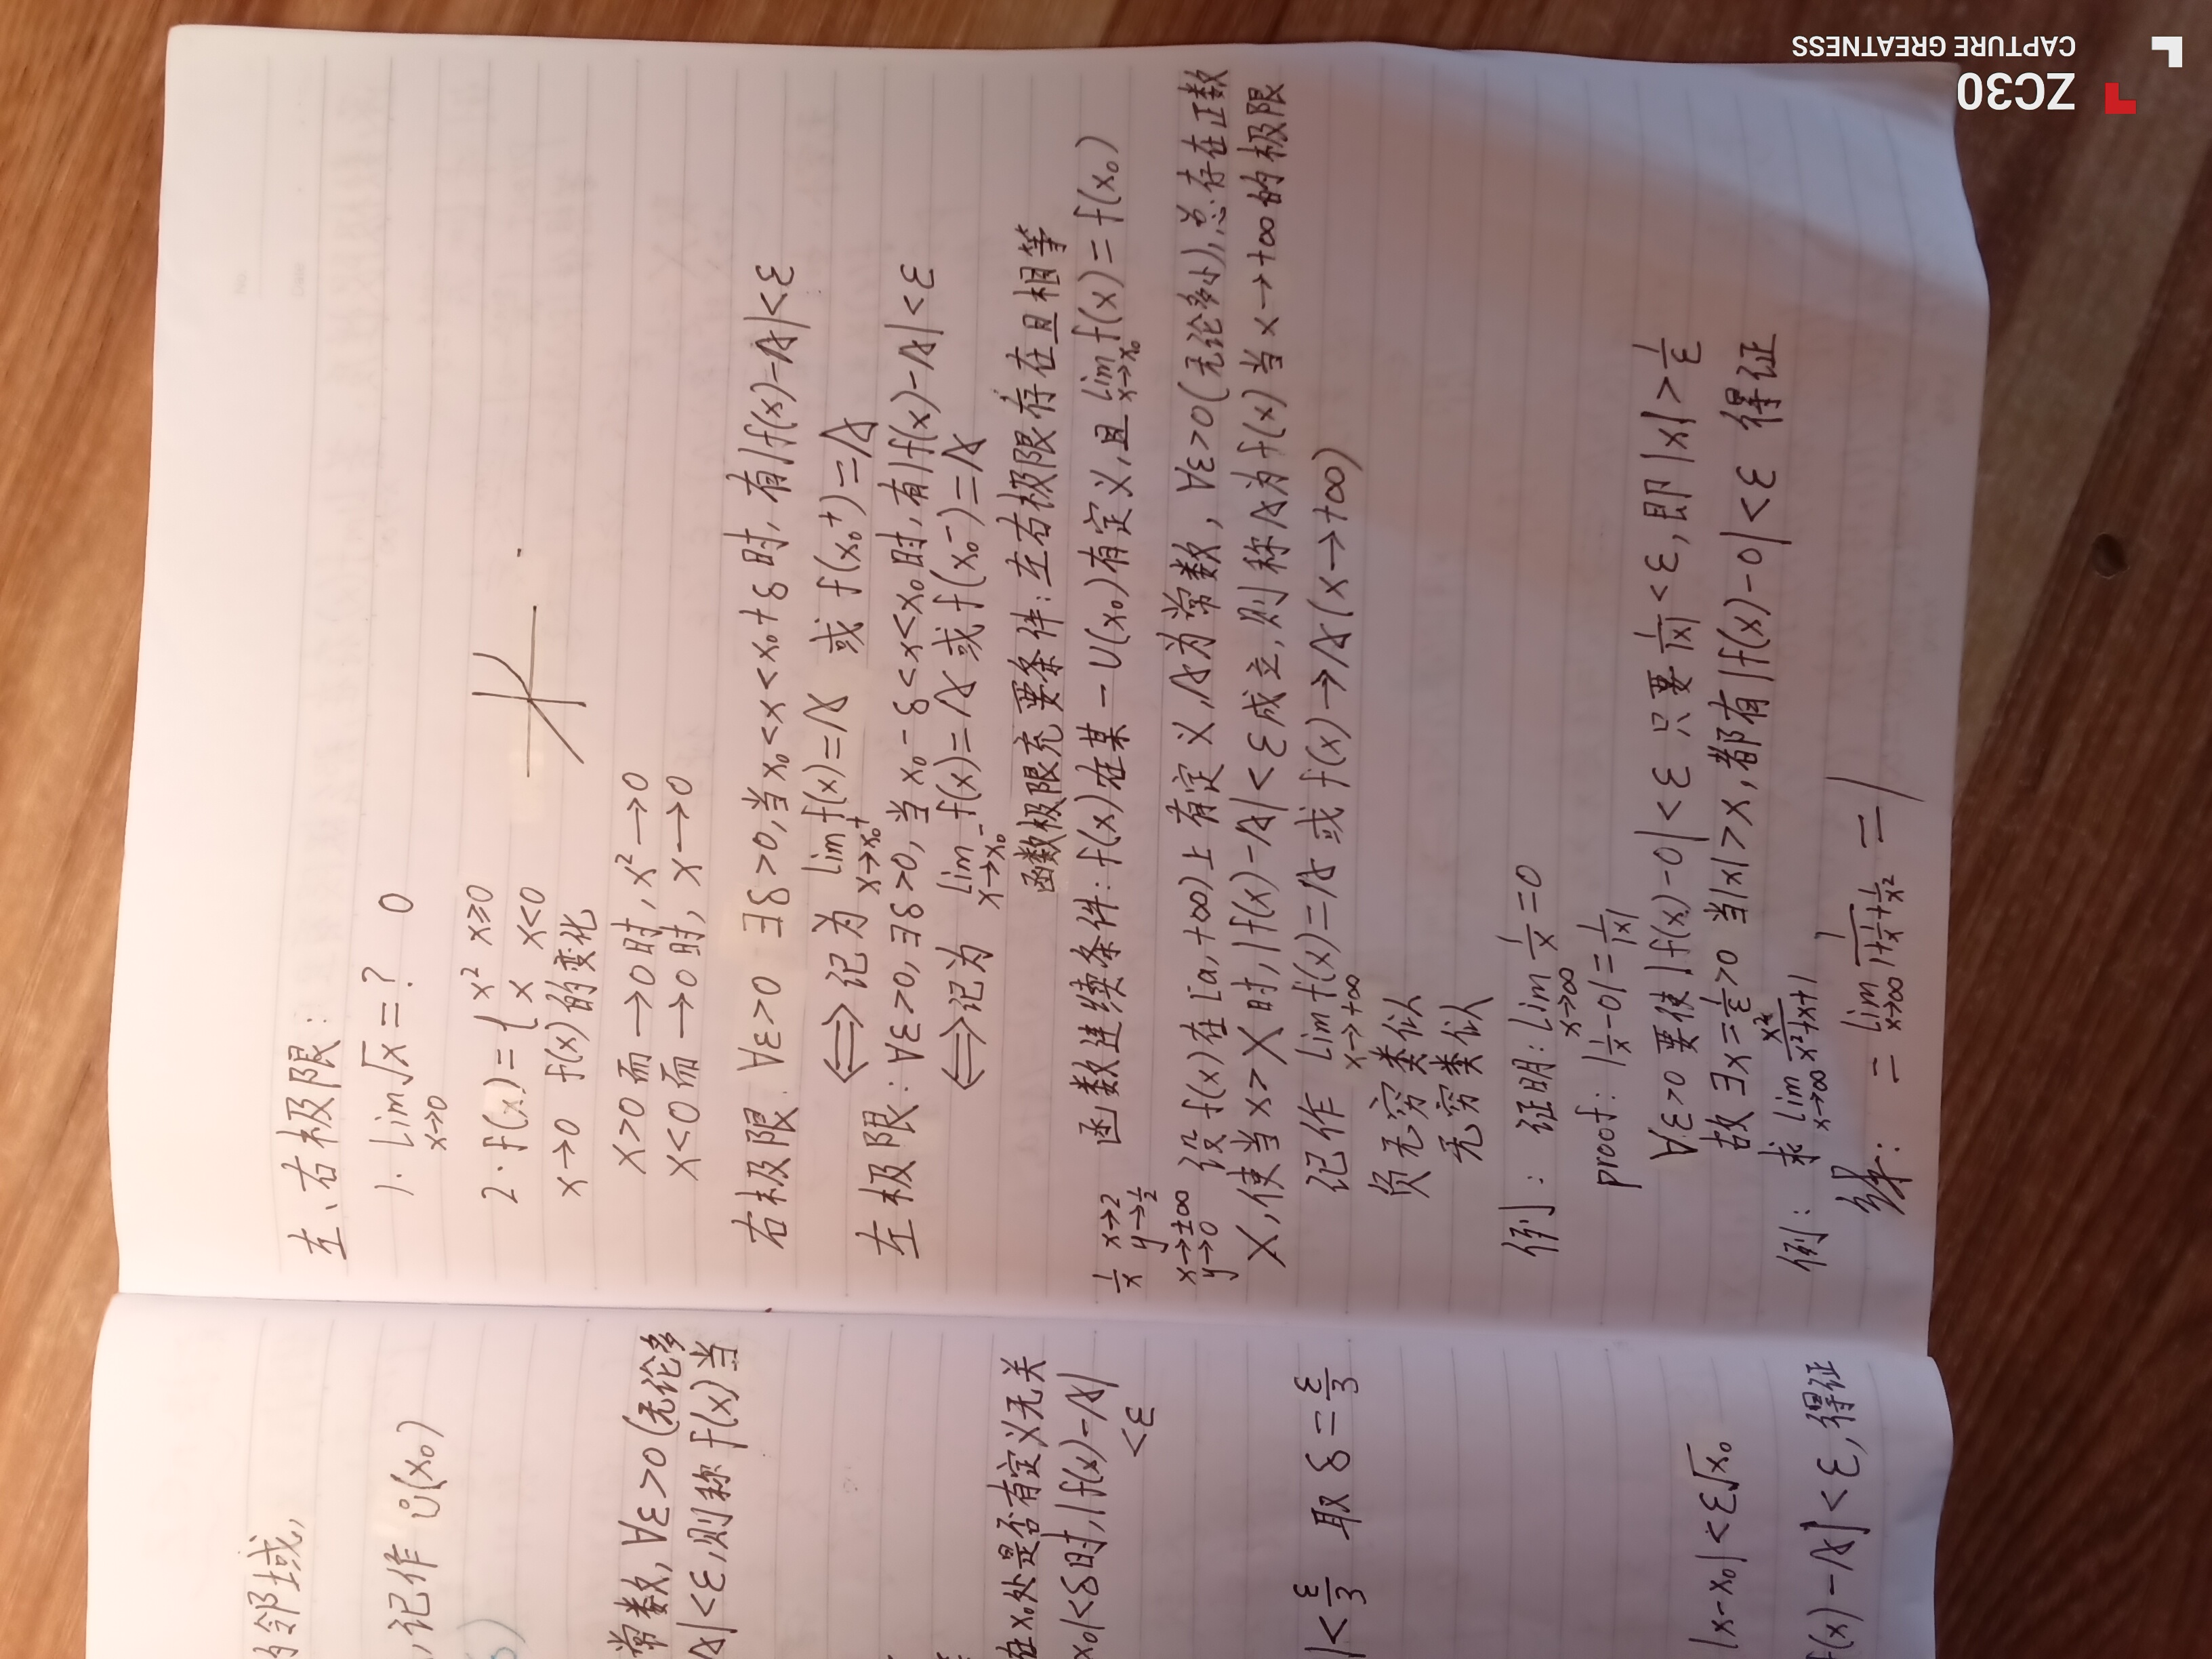 左、右极限:
1. lim√x=? 0
x→0
2. f(x)={x² x≥0
x x<0
x→0 f(x)的变化
x>0而→0时, x²→0
x<0而→0时, x→0
右极限: ∀ε>0 ∃δ>0,当x₀<x<x₀+δ时,有|f(x)-A|<ε
⟺记为 lim f(x)=A 或 f(x₀⁺)=A
x→x₀⁺
左极限: ∀ε>0,∃δ>0,当x₀-δ<x<x₀时,有|f(x)-A|<ε
⟺记为 lim f(x)=A 或 f(x₀⁻)=A
x→x₀⁻
函数极限充要条件:左右极限存在且相等
函数连续条件:f(x)在某一U(x₀)有定义,且lim f(x)=f(x₀)
x→x₀
1/x x→2
y→1/2
x→±∞
y→0
设f(x)在[a,+∞)上有定义,A为常数,∀ε>0(无论多小),总存在正数
X,使当x>X时,|f(x)-A|<ε成立,则称A为f(x)当x→+∞的极限
记作 lim f(x)=A 或 f(x)→A(x→+∞)
x→+∞
负无穷类似
无穷类似
例: 证明:lim 1/x=0
x→∞
proof: |1/x-0|=1/|x|
∀ε>0 要使|f(x)-0|<ε 只要1/|x|<ε,即|x|>1/ε
故∃X=1/ε>0 当|x|>X,都有|f(x)-0|<ε 得证
例: 求 lim x²/(x²+x+1)
x→∞
解: = lim 1/(1+1/x+1/x²) = 1
x→∞
邻域,
,记作 Ů(x₀)
常数,∀ε>0(无论多
A|<ε,则称f(x)当
在x₀处是否有定义无关
x₀|<δ时,|f(x)-A|
<ε
|<ε/3 取δ=ε/3
|x-x₀|<ε√x₀
f(x)-A|<ε,得证
ZC30
CAPTURE GREATNESS